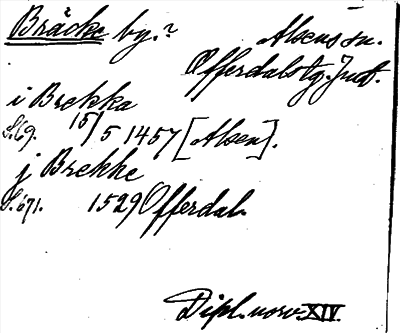 Bräcke by.?
Alsens sn.
Offerdals tg. Jmtl.
i Brekka
S.69. 15/5 1457 [Alsen].
j Brekke
S.671. 1529 Offerdal.
Dipl. norv. XIV.